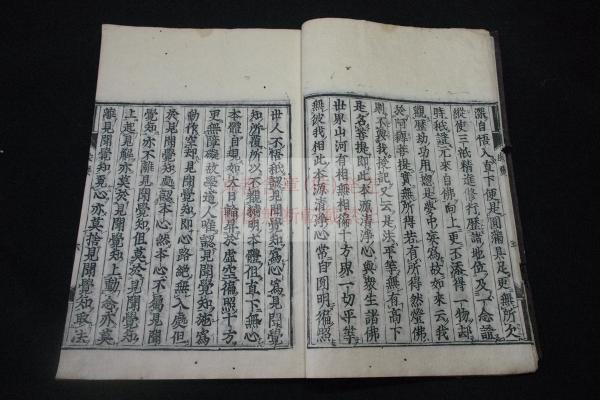 深自悟入直下便是圓滿具足更無所欠
縱使三祇精進修行歷諸地位及一念證
時秖證元來自佛向上更不添得一物却
觀歷劫功用總是夢中妄爲故如來云我
於阿耨菩提實無所得若有所得然燈佛
則不與我授記又云是法平等無有高下
是名菩提即此本源清淨心與衆生諸佛
世界山河有相無相徧十方界一切平等
無彼我相此本源清淨心常自圓明徧照
世人不悟秖認見聞覺知爲心爲見聞覺
知所覆所以不覩精明本體但直下無心
本體自現如大日輪昇於虛空徧照十方
更無障礙故學道人唯認見聞覺知施爲
動作空却見聞覺知即心路絶無入處但
於見聞覺知處認本心然本心不屬見聞
覺知亦不離見聞覺知但莫於見聞覺知
上起見解亦莫於見聞覺知上動念亦莫
離見聞覺知覓心亦莫捨見聞覺知取法